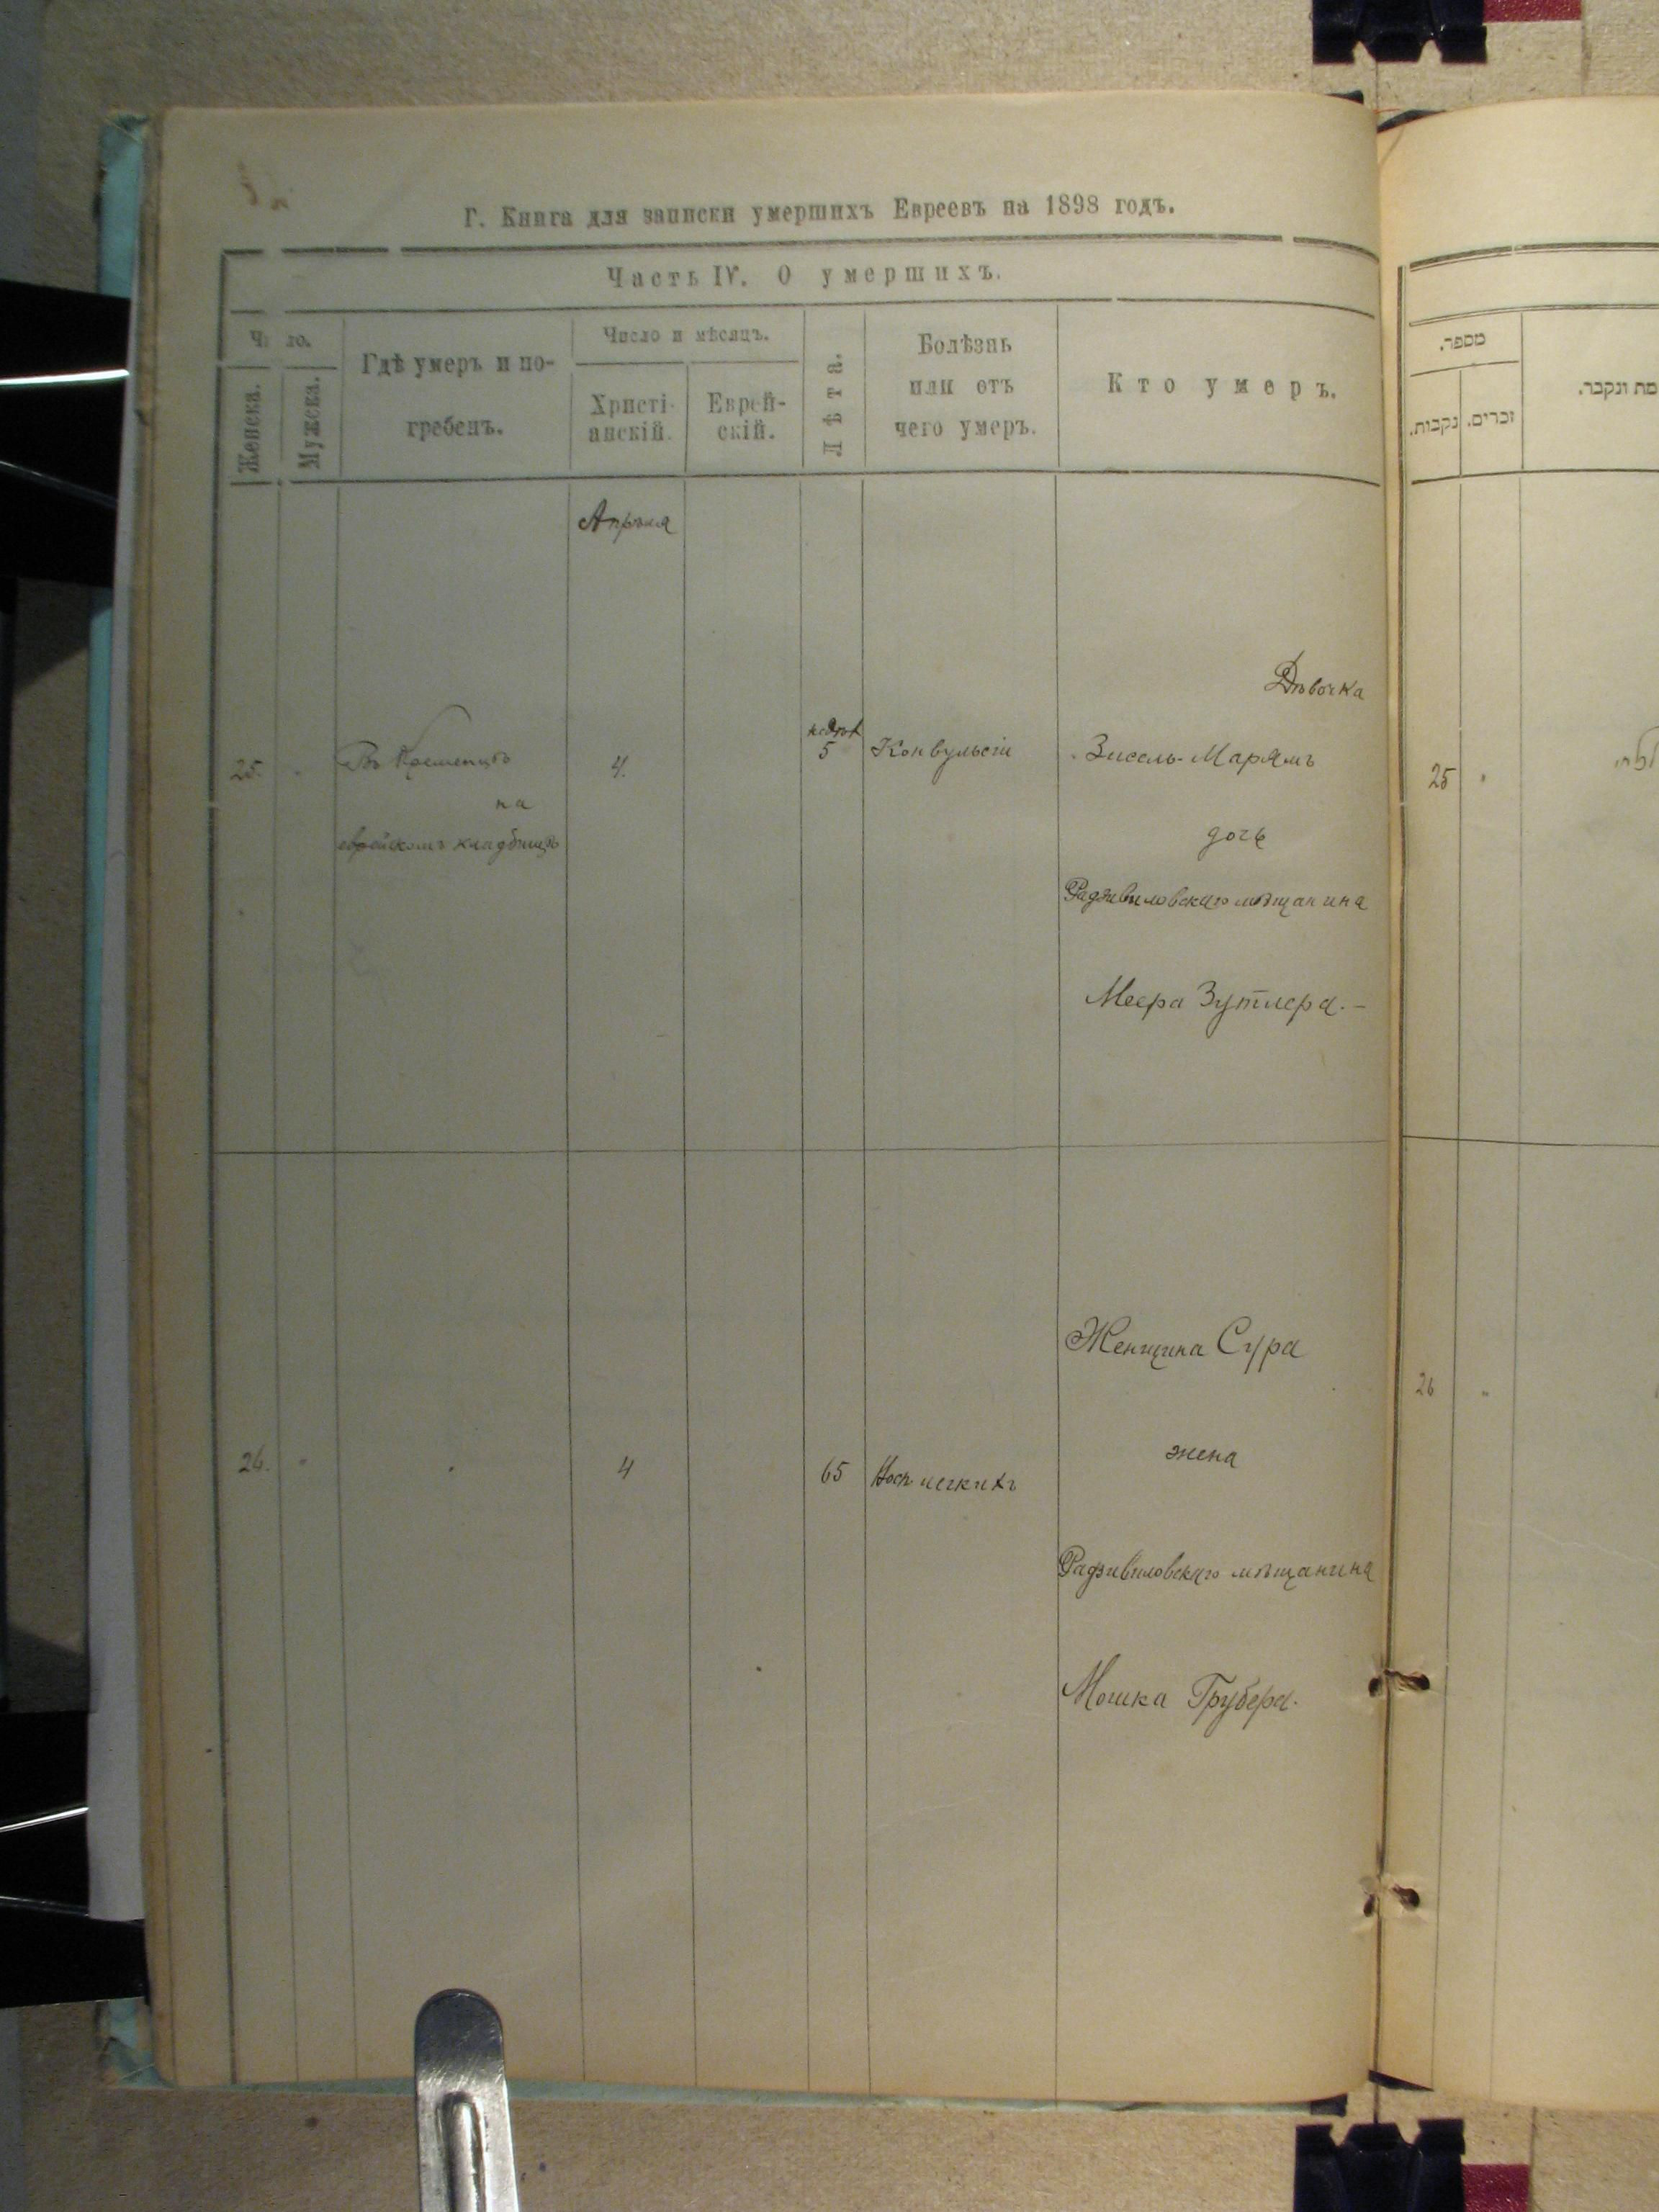 Г. Книга для записки умершихъ Евреевъ на 1898 годъ.
Часть IV. О умершихъ.
Число и мѣсяцъ.
Женска.
Мужска.
Гдѣ умеръ и по-
гребенъ.
Христі-
анскій.
Еврей-
скій.
Лѣта.
Болѣзнь
или отъ
чего умеръ.
Кто умеръ.
Апрѣля
25.
Въ Кременцѣ
на
еврейскомъ кладбищѣ
4.
5
Конвульсіи
Дѣвочка
Зисель-Марямъ
дочь
Радзивиловскаго мѣщанина
Меера Зутлера.-
26.
4
65
Восп. легкихъ
Женщина Сура
жена
Радзивиловскаго мѣщанина
Мошка Грубера.
מספר.
נקבות.
זכרים.
ונקבר.
25
26